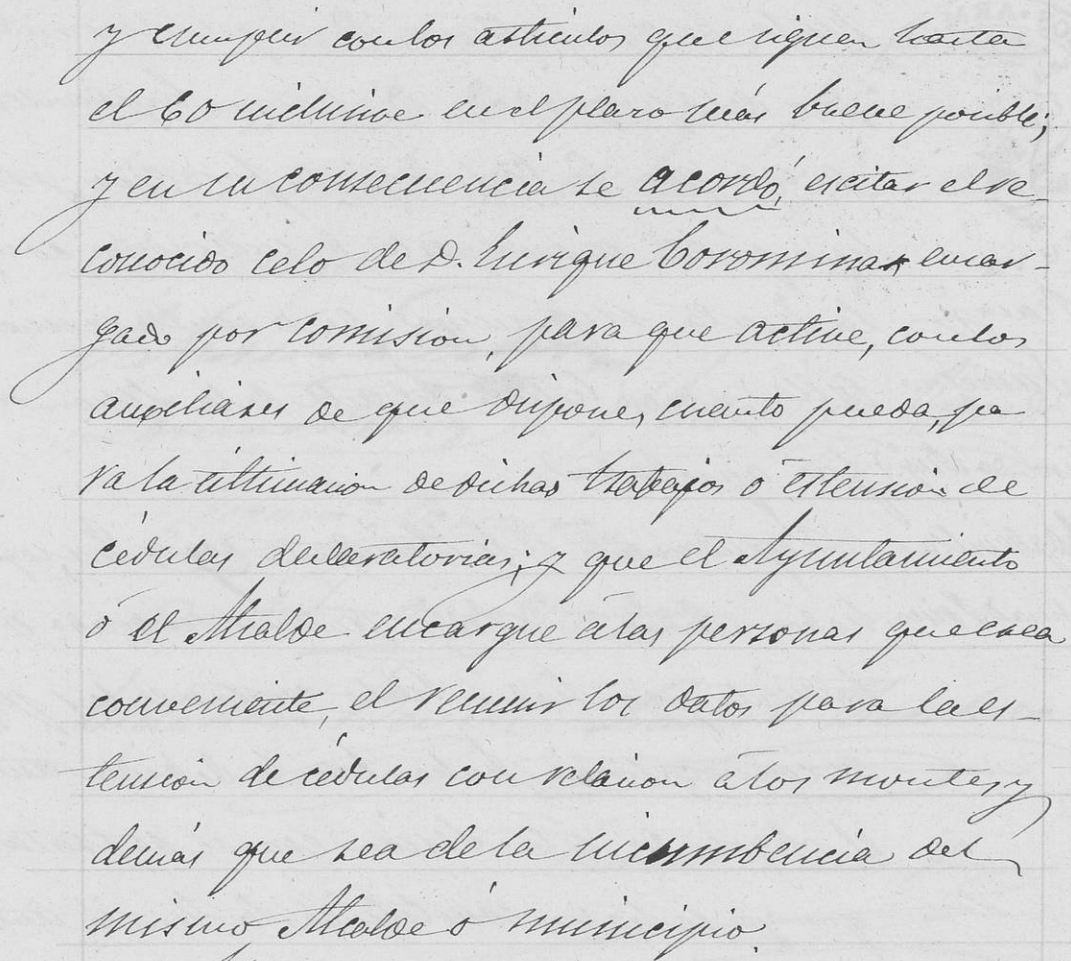 y cumplir con los articulos que siguen hasta
el 60 inclusive en el plazo más breve posible;
y en su consecuencia se acordó, escitar el re-
conocido celo de D. Enrique Corominas encar-
gado por comision, para que active, con los
auxiliares de que dispone, cuanto pueda, pa
ra la ultimacion de dichos trabajos ó estension de
cédulas declaratorias; y que el Ayuntamiento
ó el Alcalde encargue á las personas que crea
conveniente, el reunir los datos para la es-
tension de cédulas con relacion á los montes y
demás que sea de la incumbencia del
mismo Alcalde ó municipio.